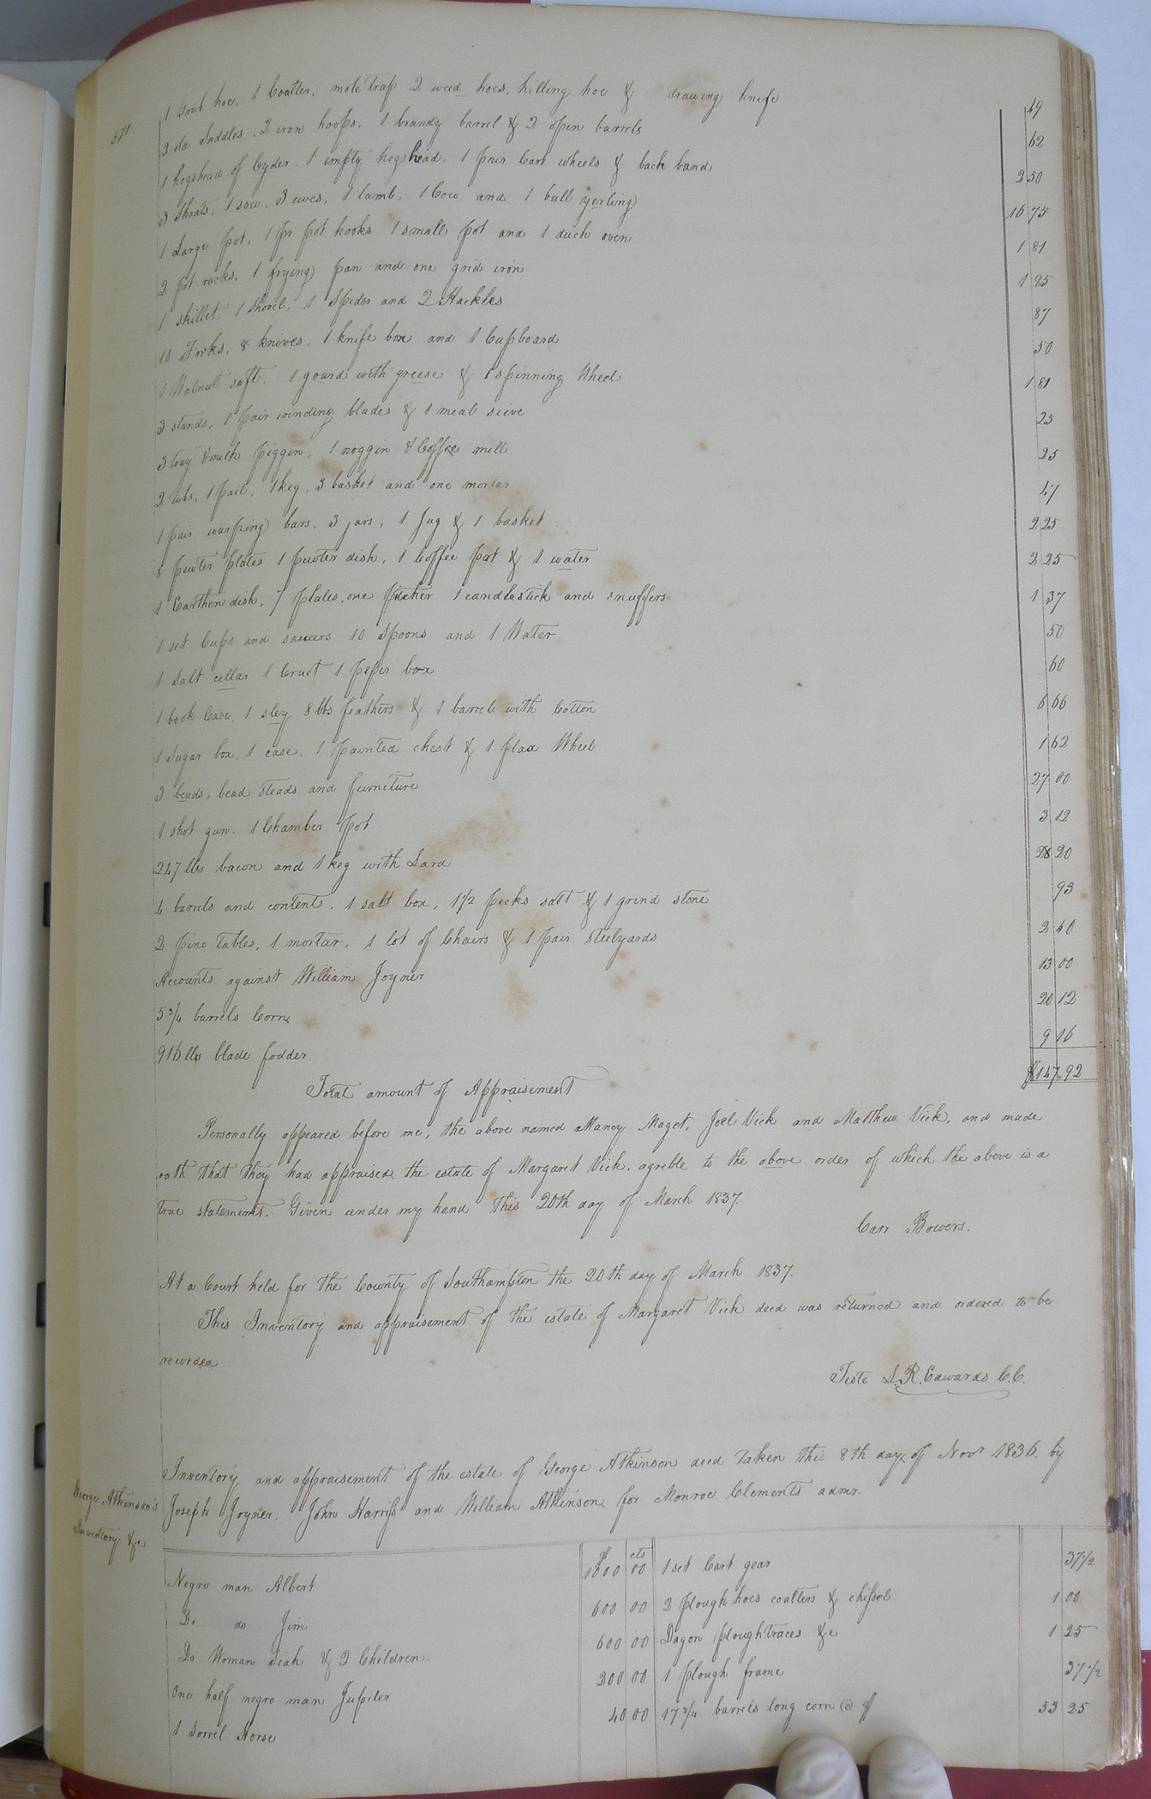 571
1 Grub hoe, 1 Coulter, mole trap 2 weed hoes, hilling hoe & drawing knife 49
2 old Saddles, 2 iron hoops, 1 brandy barrel & 2 open barrels 62
1 hogshead of Cyder, 1 empty hogshead, 1 pair Cart wheels & back band 2 50
3 Shoats, 1 sow, 3 ewes, 1 lamb, 1 Cow and 1 bull yerling 16 75
1 Large pot, 1 pr pot hooks 1 small pot and 1 duch oven 1 81
2 pot racks, 1 frying pan and one grid iron 1 25
1 Skillet, 1 Shovel, 1 Spider and 2 Hackles 87
10 Forks, 8 knives, 1 knife box and 1 Cupboard 50
1 Walnut saft. 1 gourd with greese & 1 spinning Wheel 1 81
3 stands, 1 pair winding blades & 1 meal sieve 25
3 tray 1 milk piggin, 1 noggin & Coffee mill 25
2 tubs, 1 pail, 1 keg, 3 basket and one mortar 47
1 pair warping bars, 3 jars, 1 Jug & 1 basket 2 25
8 pewter plates 1 pewter dish, 1 Coffee pot & 1 water 2 25
1 Earthen dish, 7 plates, one pitcher 1 candlestick and snuffers 1 37
1 set Cups and saucers 10 Spoons and 1 Water 50
1 Salt cellar 1 Cruet 1 peper box 60
1 book Case, 1 sley 8 lbs feathers & 1 barrel with Cotton 6 66
1 Sugar box, 1 case, 1 painted chest & 1 flax Wheel 1 62
3 beads, bead steads and furniture 27 00
1 shot gun, 1 Chamber pot 3 12
247 lbs bacon and 1 keg with Lard 28 20
4 barrels and contents, 1 salt box, 1 1/2 pecks salt & 1 grind stone 93
2 pine tables, 1 mortar, 1 lot of Chairs & 1 pair Steelyards 2 40
Accounts against William Joyner 13 00
5 3/4 barrels Corn 20 12
916 lbs blade fodder 9 16
Total amount of Appraisement $147.92
Personally appeared before me, the above named Mancy Maget, Joel Vick and Matthew Vick, and made
oath that they had appraised the estate of Margaret Vick, agreble to the above order of which the above is a
true statement. Given under my hand this 20th day of March 1837.
Carr Bowers.
At a Court held for the County of Southampton the 20th day of March 1837.
This Inventory and appraisement of the estate of Margaret Vick decd was returned and ordered to be
recorded
Teste L. R. Edwards C.C.
George Atkinson's
Inventory &c
Inventory and appraisement of the estate of George Atkinson decd taken this 8th day of Novr 1836, by
Joseph Joyner, John Harriss and William Atkinson for Monroe Clements admr.
$ cts
Negro man Albert 1000 00 1 set Cart gear 37 1/2
Do do Jim 600 00 2 plough hoes coulters & chissel 1 00
Do Woman Leah & 2 Children 600 00 Dagon plough traces &c 1 25
One half negro man Jupiter 200 00 1 plough frame 37 1/2
1 Sorrel Horse 40 00 17 3/4 barrels long corn @ $ 53 25